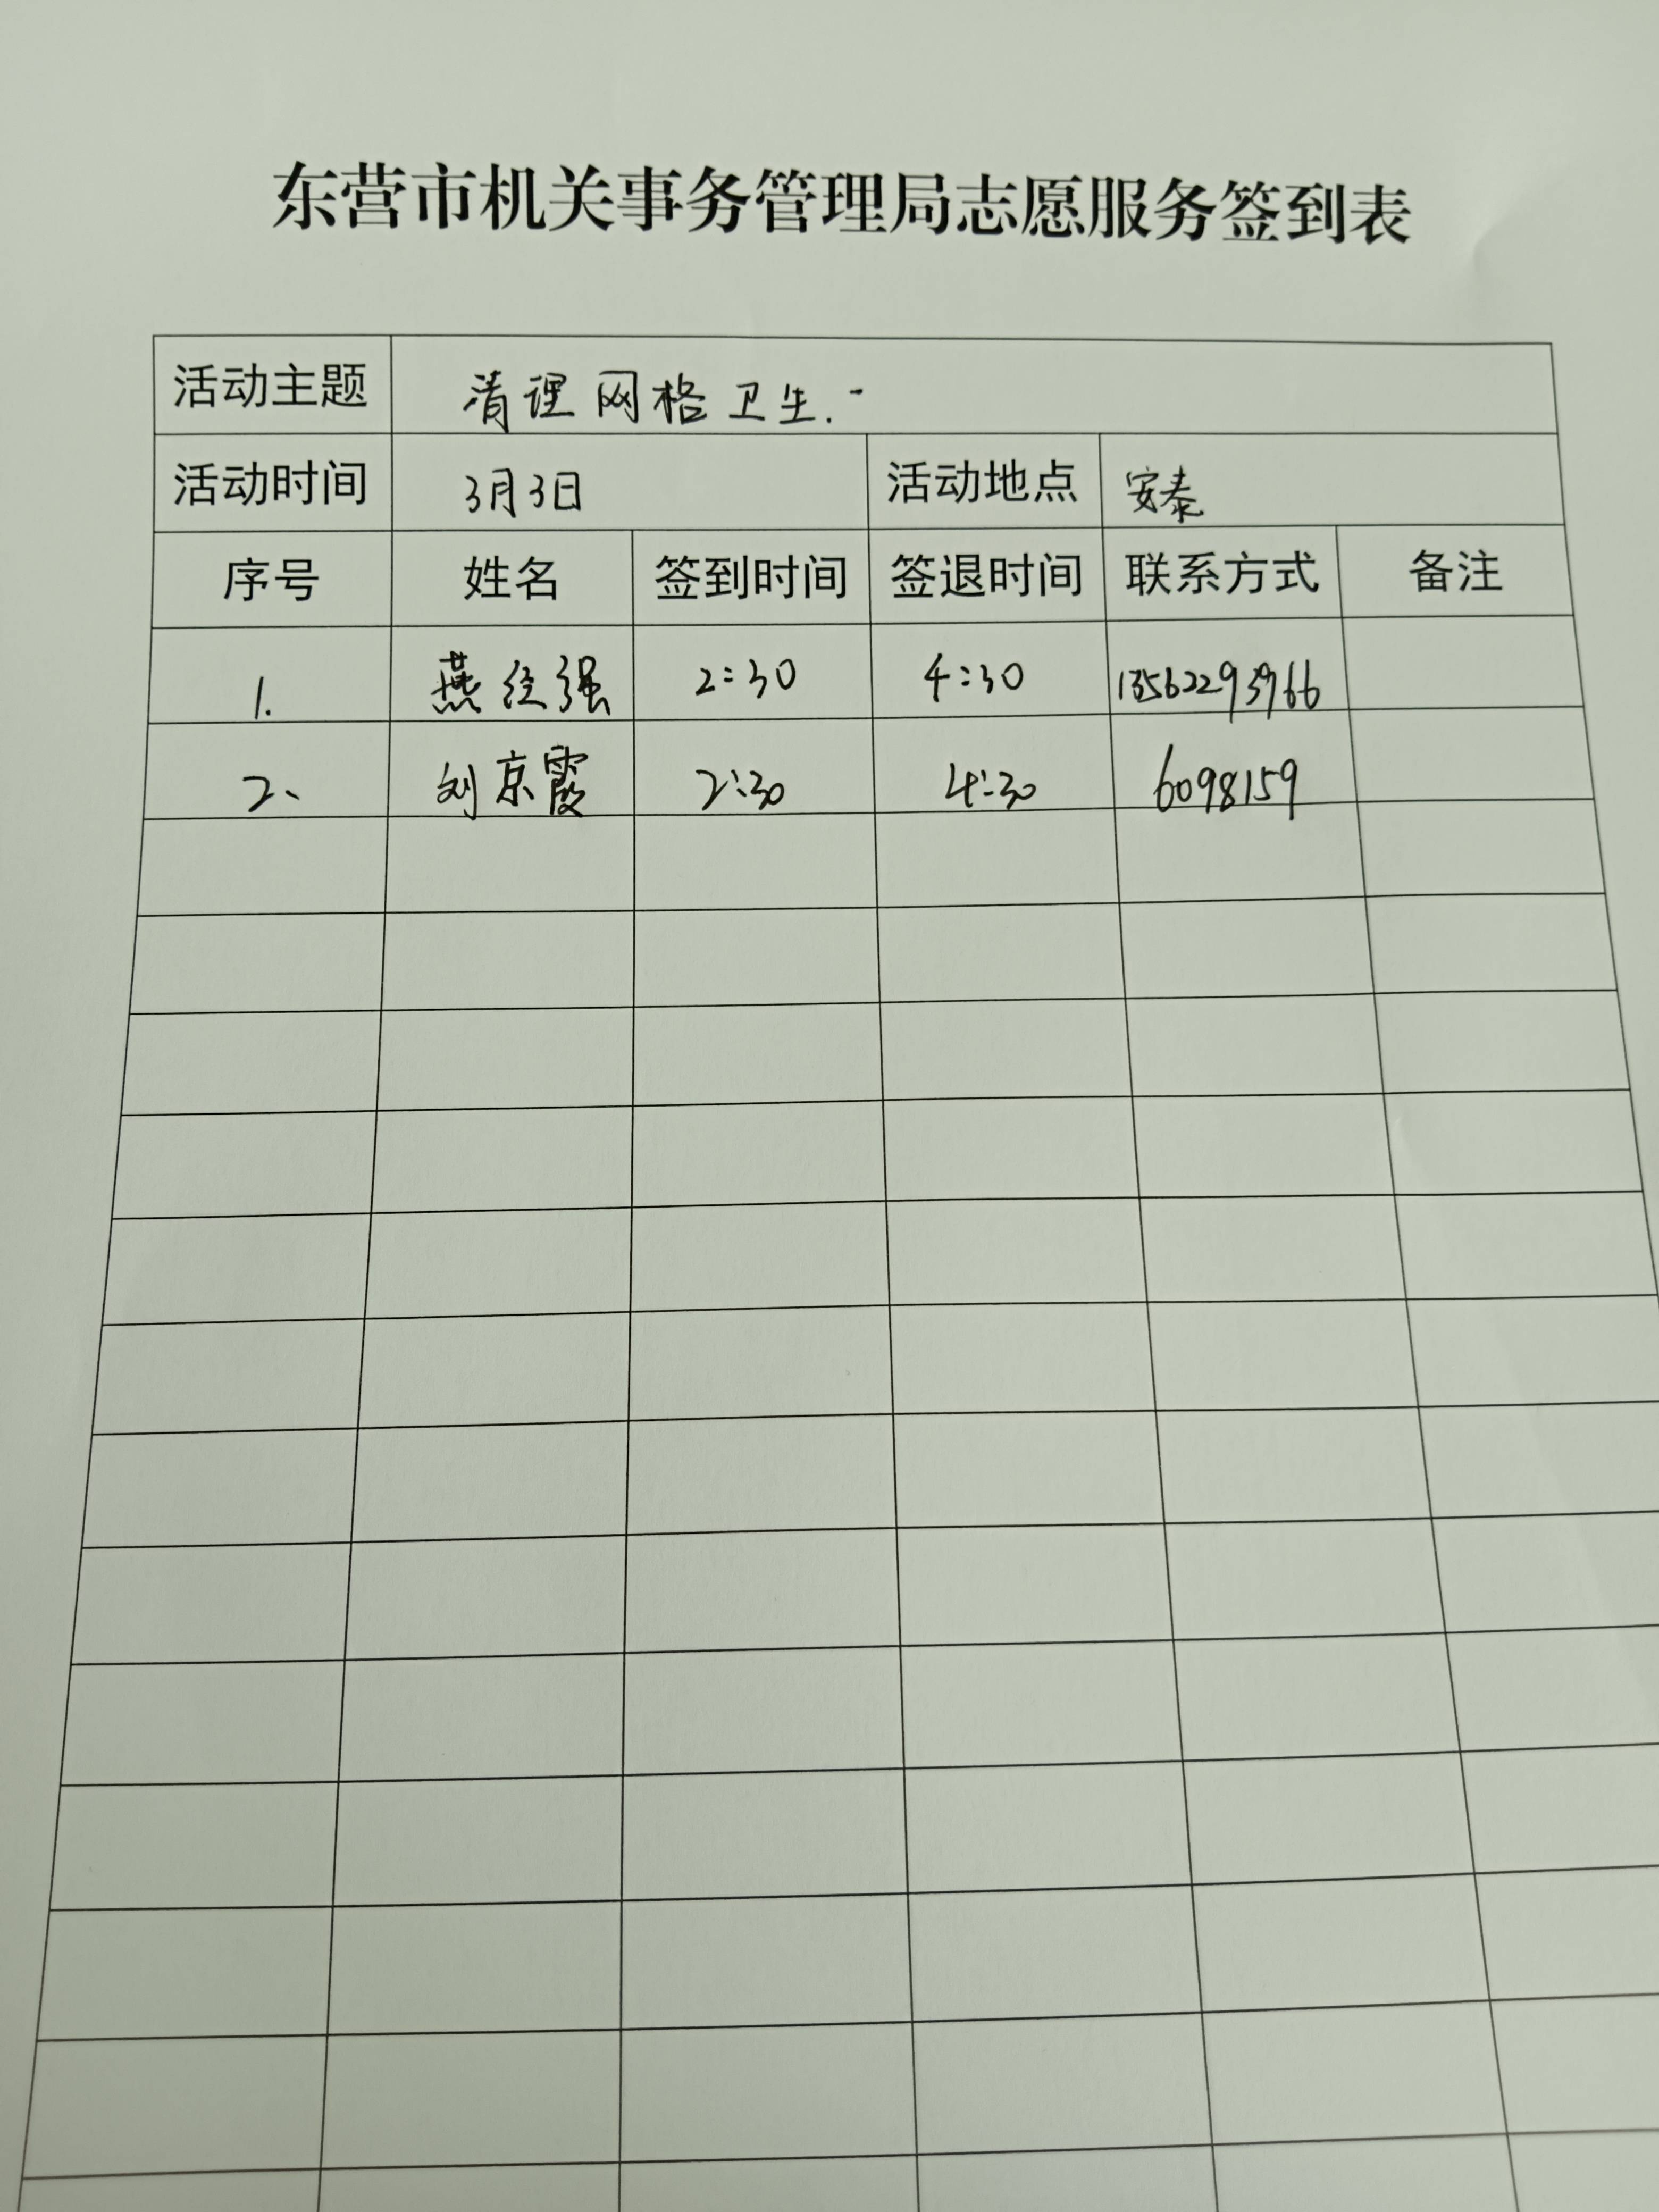 东营市机关事务管理局志愿服务签到表
活动主题 清理网格卫生.
活动时间 3月3日 活动地点 安泰
序号 姓名 签到时间 签退时间 联系方式 备注
1. 燕经强 2:30 4:30 13562293966
2、 刘京霞 2:30 4:30 6098159